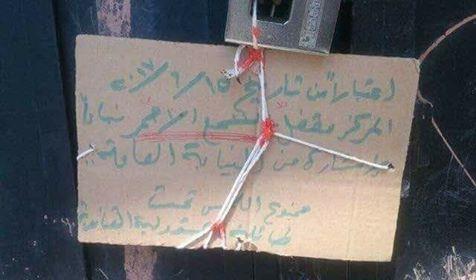 اعتباراً من تاريخ ٢٠١٧/٦/١٥
المركز مقفل بالشمع الأحمر بناءاً
من النيابة العامة ..
ممنوع اللمس تحت
طائلة المسؤولية القانونية